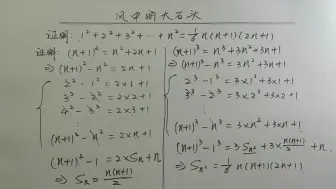 风中的大石头
证明: 1² + 2² + 3² + ⋯ + n² = 1/6 n(n+1)(2n+1)
证明: (n+1)² = n² + 2n + 1
⇒ (n+1)² - n² = 2n + 1
2² - 1² = 2×1 + 1
3² - 2² = 2×2 + 1
4² - 3² = 2×3 + 1
⋮
(n+1)² - n² = 2×n + 1
(n+1)² - 1 = 2×Sn + n
⇒ Sn = n(n+1)/2
(n+1)³ = n³ + 3n² + 3n + 1
⇒ (n+1)³ - n³ = 3n² + 3n + 1
2³ - 1³ = 3×1² + 3×1 + 1
3³ - 2³ = 3×2² + 3×2 + 1
⋮
(n+1)³ - n³ = 3×n² + 3×n + 1
(n+1)³ - 1³ = 3Sn² + 3×n(n+1)/2 + n
⇒ Sn² = 1/6 n(n+1)(2n+1)